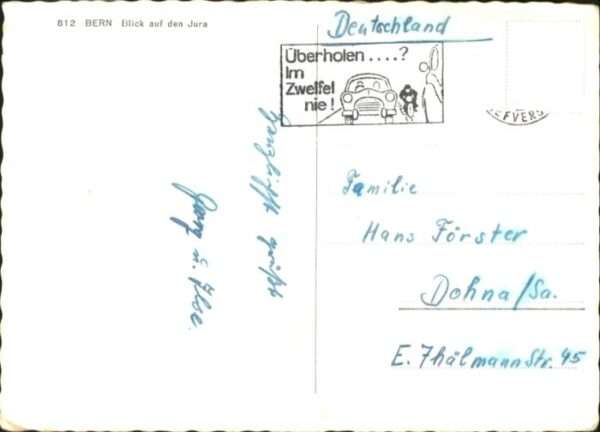 812 BERN Blick auf den Jura
Deutschland
Überholen ....?
Im
Zweifel
nie!
EFVERS
Herzlichst grüßt
Georg u. Ilse.
Familie
Hans Förster
Dohna/Sa.
E. Thälmann Str. 45